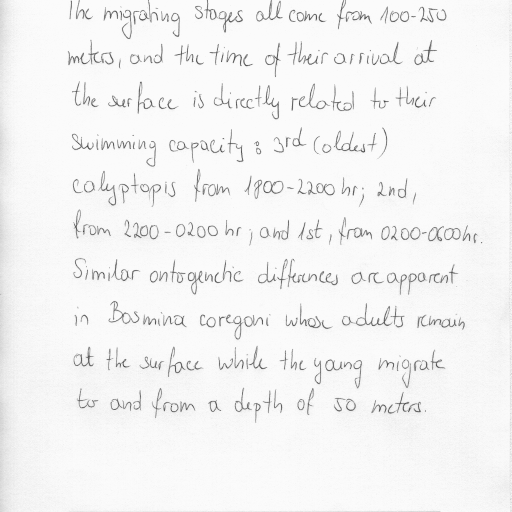 The migrating stages all come from 100-250
meters, and the time of their arrival at
the surface is directly related to their
swimming capacity : 3rd (oldest)
calyptopis from 1800-2200 hr; 2nd,
from 2200-0200 hr; and 1st, from 0200-0600 hr.
Similar ontogenetic differences are apparent
in Bosmina coregoni whose adults remain
at the surface while the young migrate
to and from a depth of 50 meters.